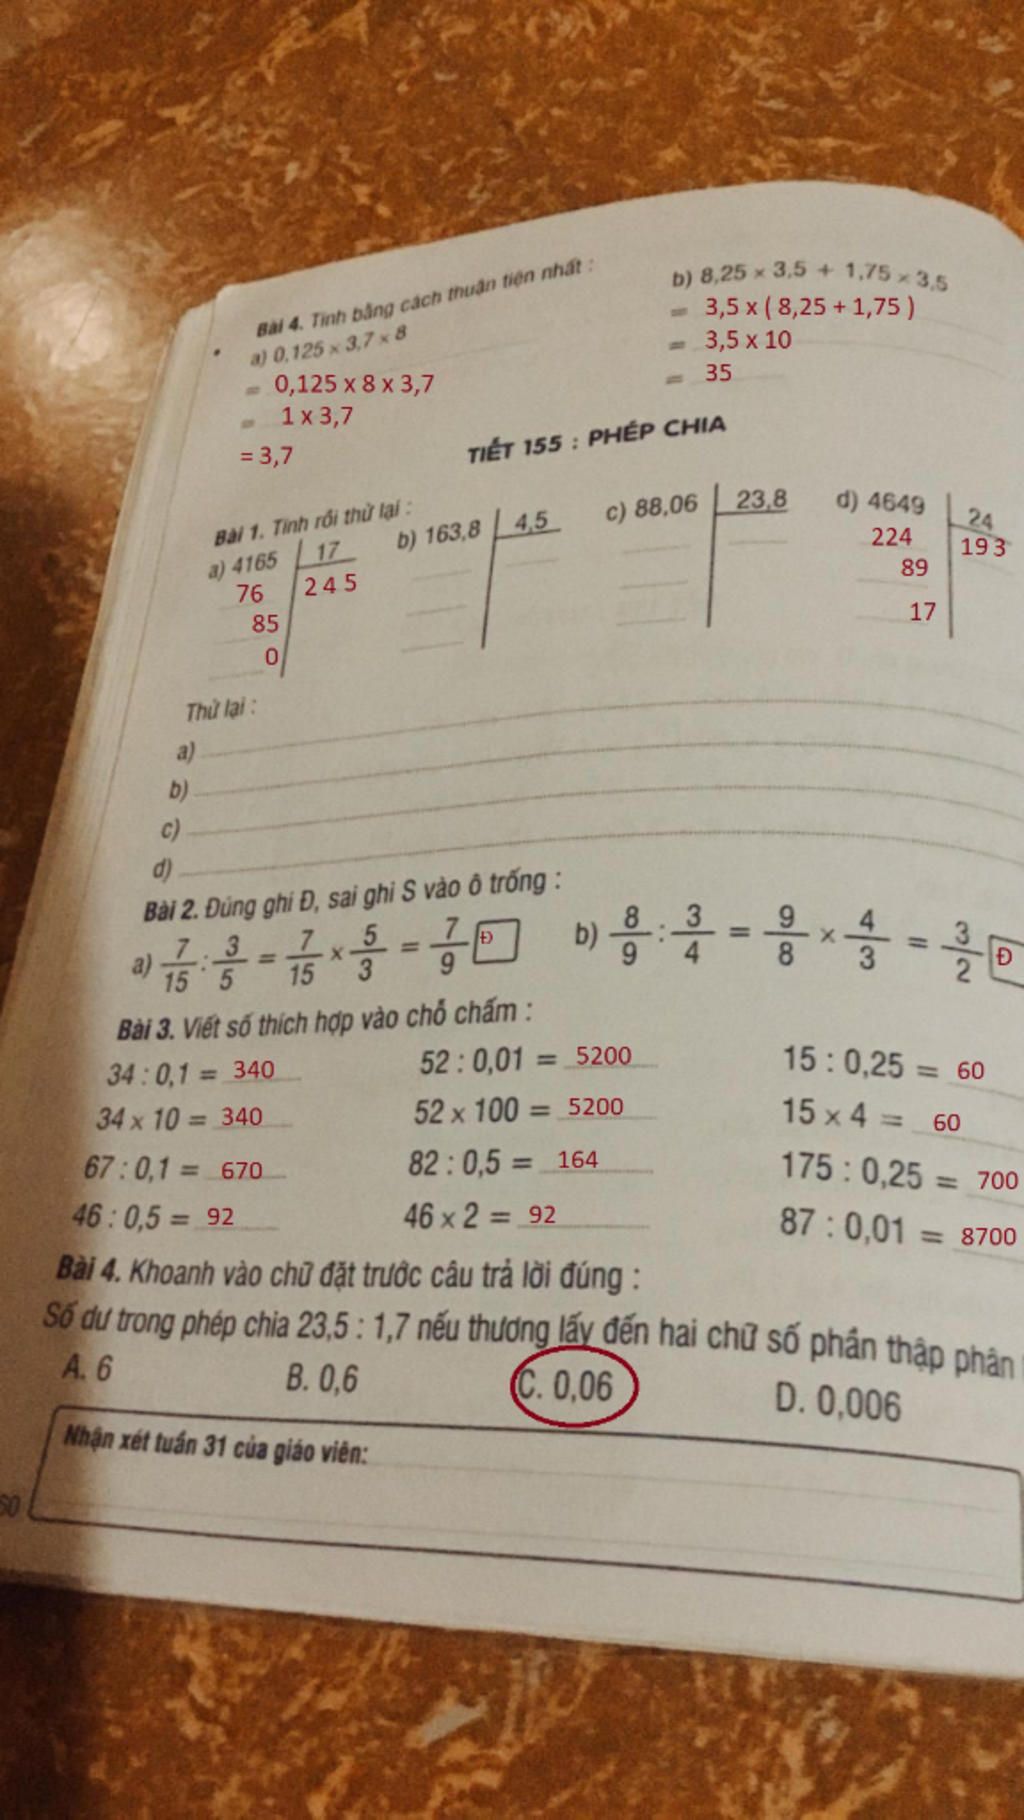 Bài 4. Tính bằng cách thuận tiện nhất :
a) 0,125 × 3,7 × 8
= 0,125 x 8 x 3,7
= 1 x 3,7
= 3,7
b) 8,25 × 3,5 + 1,75 × 3,5
= 3,5 x ( 8,25 + 1,75 )
= 3,5 x 10
= 35
TIẾT 155 : PHÉP CHIA
Bài 1. Tính rồi thử lại :
a) 4165 17
76 2 4 5
85
0
b) 163,8 4,5
c) 88,06 23,8
d) 4649 24
224 19 3
89
17
Thử lại :
a)
b)
c)
d)
Bài 2. Đúng ghi Đ, sai ghi S vào ô trống :
a) 7/15 : 3/5 = 7/15 × 5/3 = 7/9 Đ
b) 8/9 : 3/4 = 9/8 × 4/3 = 3/2 Đ
Bài 3. Viết số thích hợp vào chỗ chấm :
34 : 0,1 = 340 52 : 0,01 = 5200 15 : 0,25 = 60
34 × 10 = 340 52 × 100 = 5200 15 × 4 = 60
67 : 0,1 = 670 82 : 0,5 = 164 175 : 0,25 = 700
46 : 0,5 = 92 46 × 2 = 92 87 : 0,01 = 8700
Bài 4. Khoanh vào chữ đặt trước câu trả lời đúng :
Số dư trong phép chia 23,5 : 1,7 nếu thương lấy đến hai chữ số phần thập phân
A. 6 B. 0,6 C. 0,06 D. 0,006
Nhận xét tuần 31 của giáo viên: